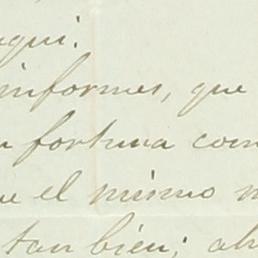 aqui.
informes, que
fortuna com
ue el mismo m
tan bien; ah